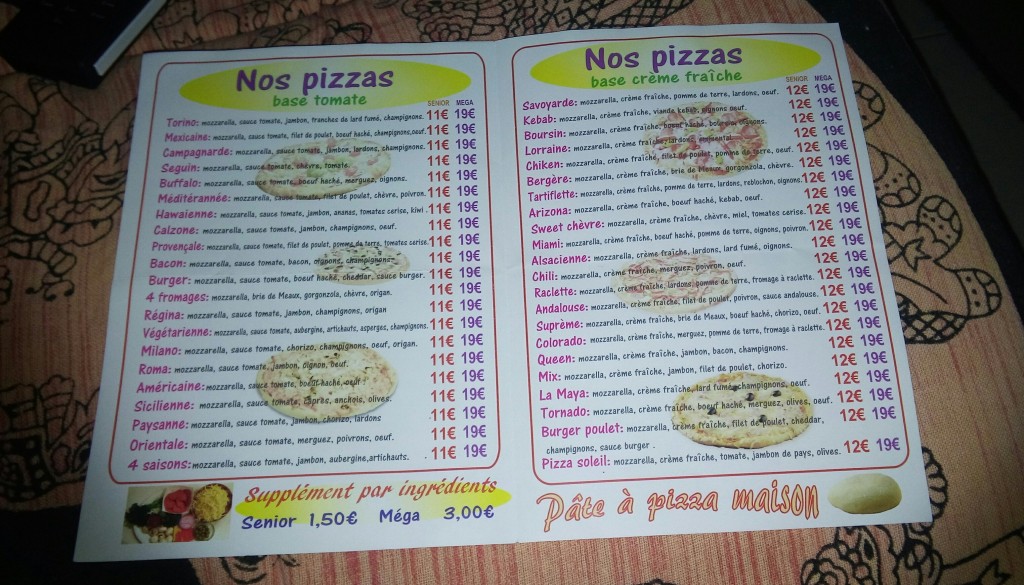 Nos pizzas
base tomate
SENIOR MEGA
Torino: mozzarella, sauce tomate, jambon, tranches de lard fumé, champignons. 11€ 19€
Mexicaine: mozzarella, sauce tomate, filet de poulet, boeuf haché, champignons,oeuf. 11€ 19€
Campagnarde: mozzarella, sauce tomate, jambon, lardons, champignons. 11€ 19€
Seguin: mozzarella, sauce tomate, chèvre, tomate. 11€ 19€
Buffalo: mozzarella, sauce tomate, boeuf haché, merguez, oignons. 11€ 19€
Méditérannée: mozzarella, sauce tomate, filet de poulet, chèvre, poivron. 11€ 19€
Hawaienne: mozzarella, sauce tomate, jambon, ananas, tomates cerise, kiwi . 11€ 19€
Calzone: mozzarella, sauce tomate, jambon, champignons, oeuf. 11€ 19€
Provençale: mozzarella, sauce tomate, filet de poulet, pomme de terre, tomates cerise. 11€ 19€
Bacon: mozzarella, sauce tomate, bacon, oignons, champignons. 11€ 19€
Burger: mozzarella, sauce tomate, boeuf haché, cheddar, sauce burger. 11€ 19€
4 fromages: mozzarella, brie de Meaux, gorgonzola, chèvre, origan. 11€ 19€
Régina: mozzarella, sauce tomate, jambon, champignons, origan 11€ 19€
Végétarienne: mozzarella, sauce tomate, aubergine, artichauts, asperges, champignons. 11€ 19€
Milano: mozzarella, sauce tomate, chorizo, champignons, oeuf, origan. 11€ 19€
Roma: mozzarella, sauce tomate, jambon, oignon, oeuf. 11€ 19€
Américaine: mozzarella, sauce tomate, boeuf haché, oeuf . 11€ 19€
Sicilienne: mozzarella, sauce tomate, capres, anchois, olives. 11€ 19€
Paysanne: mozzarella, sauce tomate, jambon, chorizo, lardons 11€ 19€
Orientale: mozzarella, sauce tomate, merguez, poivrons, oeuf. 11€ 19€
4 saisons: mozzarella, sauce tomate, jambon, aubergine,artichauts. . 11€ 19€
Supplément par ingrédients
Senior 1,50€ Méga 3,00€
Nos pizzas
base crème fraîche
SENIOR MEGA
Savoyarde: mozzarella, crème fraîche, pomme de terre, lardons, oeuf. 12€ 19€
Kebab: mozzarella, crème fraîche, viande kebab, oignons oeuf. 12€ 19€
Boursin: mozzarella, crème fraîche, boeuf haché, boursin, oignons. 12€ 19€
Lorraine: mozzarella, crème fraîche, lardons, emmental. 12€ 19€
Chiken: mozzarella, crème fraîche, filet de poulet, pomme de terre, oeuf. 12€ 19€
Bergère: mozzarella, crème fraîche, brie de Meaux, gorgonzola, chèvre. 12€ 19€
Tartiflette: mozzarella, crème fraîche, pomme de terre, lardons, reblochon, oignons. 12€ 19€
Arizona: mozzarella, crème fraîche, boeuf haché, kebab, oeuf. 12€ 19€
Sweet chèvre: mozzarella, crème fraîche, chèvre, miel, tomates cerise. 12€ 19€
Miami: mozzarella, crème fraîche, boeuf haché, pomme de terre, oignons, poivron. 12€ 19€
Alsacienne: mozzarella, crème fraîche, lardons, lard fumé, oignons. 12€ 19€
Chili: mozzarella, crème fraîche, merguez, poivron, oeuf. 12€ 19€
Raclette: mozzarella, crème fraîche, lardons, pomme de terre, fromage à raclette. 12€ 19€
Andalouse: mozzarella, crème fraîche, filet de poulet, poivron, sauce andalouse. 12€ 19€
Suprème: mozzarella, crème fraîche, brie de Meaux, boeuf haché, chorizo, oeuf. 12€ 19€
Colorado: mozzarella, crème fraîche, merguez, pomme de terre, fromage à raclette. 12€ 19€
Queen: mozzarella, crème fraîche, jambon, bacon, champignons. 12€ 19€
Mix: mozzarella, crème fraîche, jambon, filet de poulet, chorizo. 12€ 19€
La Maya: mozzarella, crème fraîche, lard fumé, champignons, oeuf. 12€ 19€
Tornado: mozzarella, crème fraîche, boeuf haché, merguez, olives, oeuf. 12€ 19€
Burger poulet: mozzarella, crème fraîche, filet de poulet, cheddar, 12€ 19€
champignons, sauce burger .
Pizza soleil: mozzarella, crème fraîche, tomate, jambon de pays, olives. 12€ 19€
Pâte à pizza maison